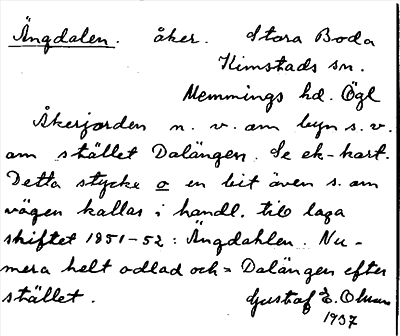 Ängdalen. åker. Stora Boda
Kimstads sn.
Memmings hd. Ögl
Åkerjorden n. v. om byn s. v.
om stället Dalängen. Se ek-kart.
Detta stycke o en bit även s. om
vägen kallas i handl. till laga
skiftet 1851-52: Ängdahlen. Nu-
mera helt odlad och = Dalängen efter
stället. Gustaf E.
1937